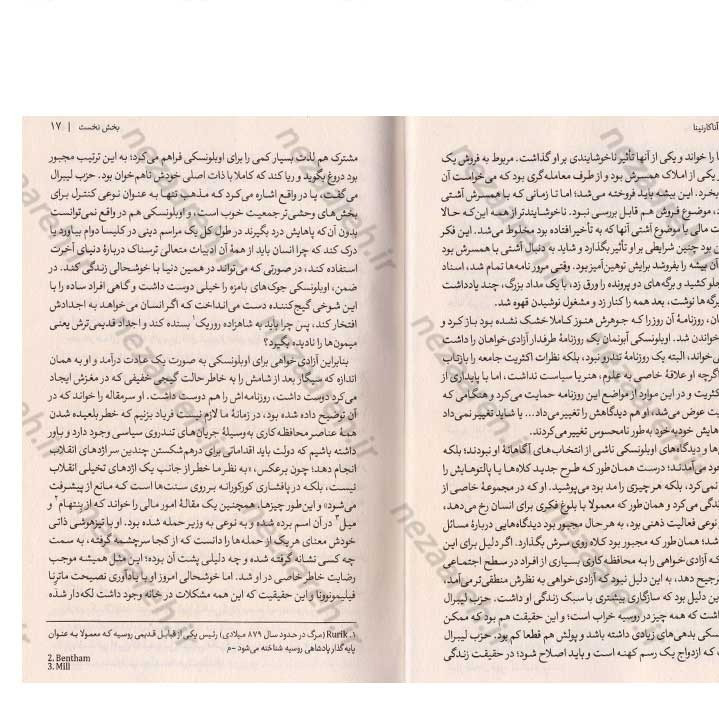 آناکارنینا
ا را خواند و یکی از آنها تأثیر ناخوشایندی بر او گذاشت. مربوط به فروش یک
یکی از املاک همسرش بود و از طرف معامله‌گری بود که می‌خواست آن
بخرد. این بیشه باید فروخته می‌شد؛ اما تا زمانی که با همسرش آشتی
، موضوع فروش هم قابل بررسی نبود. ناخوشایندتر از همه این‌که حالا
ت مالی با موضوع آشتی آنها که به تأخیر افتاده بود مخلوط می‌شد. این فکر
ن بود چنین شرایطی بر او تأثیر بگذارد و شاید به دنبال آشتی با همسرش بود
آن بیشه را بفروشد برایش توهین‌آمیز بود. وقتی مرور نامه‌ها تمام شد، اسناد
جلو کشید و برگه‌های دو پرونده را ورق زد، با یک مداد بزرگ، چند یادداشت
برگه‌ها نوشت، بعد همه را کنار زد و مشغول نوشیدن قهوه شد.
ان، روزنامهٔ آن روز را که جوهرش هنوز کاملا خشک نشده بود باز کرد و
خواندن شد. اوبلونسکی آبونمان یک روزنامهٔ طرفدار آزادی‌خواهان را داشت
ی‌خواند، البته یک روزنامهٔ تندرو نبود، بلکه نظرات اکثریت جامعه را بازتاب
اگرچه او علاقهٔ خاصی به علوم، هنر یا سیاست نداشت، اما با پایداری از
کثریت و در این موارد از مواضع این روزنامه حمایت می‌کرد و هنگامی که
یت عوض می‌شد، او هم دیدگاهش را تغییر می‌داد... یا شاید تغییر نمی‌داد
دهایش خودبه‌خود به‌طور نامحسوس تغییر می‌کردند.
ها و دیدگاه‌های اوبلونسکی ناشی از انتخاب‌های آگاهانهٔ او نبودند؛ بلکه
عود می‌آمدند؛ درست همان‌طور که طرح جدید کلاه‌ها یا پالتوهایش را
نمی‌کرد، بلکه هر چیزی را مد بود می‌پوشید. او که در مجموعهٔ خاصی از
ندگی می‌کرد و همان‌طور که معمولا با بلوغ فکری برای انسان رخ می‌دهد،
نوعی فعالیت ذهنی بود، به هر حال مجبور بود دیدگاه‌هایی دربارهٔ مسائل
شد؛ همان‌طور که مجبور بود کلاه روی سرش بگذارد. اگر دلیل برای این
که آزادی‌خواهی را به محافظه‌کاری بسیاری از افراد در سطح اجتماعی
ترجیح دهد، به این دلیل نبود که آزادی‌خواهی به نظرش منطقی‌تر می‌آمد،
این دلیل بود که سازگاری بیشتری با سبک زندگی او داشت. حزب لیبرال
اشت که همه چیز در روسیه خراب است؛ و این حقیقت هم بود که ممکن
سکی بدهی‌های زیادی داشته باشد و پولش هم قطعا کم بود. حزب لیبرال
ت که ازدواج یک رسم کهنه است و باید اصلاح شود؛ در حقیقت زندگی
بخش نخست | ۱۷
مشترک هم لذت بسیار کمی را برای اوبلونسکی فراهم می‌کرد؛ به این ترتیب مجبور
بود دروغ بگوید و ریا کند که کاملا با ذات اصلی خودش ناهم‌خوان بود. حزب لیبرال
می‌گفت، یا در واقع اشاره می‌کرد که مذهب تنها به عنوان نوعی کنترل برای
بخش‌های وحشی‌تر جمعیت خوب است، و اوبلونسکی هم در واقع نمی‌توانست
بدون آن‌که پاهایش درد بگیرند در طول کل یک مراسم دینی در کلیسا دوام بیاورد یا
درک کند که چرا انسان باید از همهٔ آن ادبیات متعالی ترسناک دربارهٔ دنیای آخرت
استفاده کند، در صورتی که می‌تواند در همین دنیا با خوشحالی زندگی کند. در
ضمن، اوبلونسکی جوک‌های بامزه را خیلی دوست داشت و گاهی افراد ساده را با
این شوخی گیج‌کننده دست می‌انداخت که اگر انسان می‌خواهد به اجدادش
افتخار کند، پس چرا باید به شاهزاده روریک۱ بسنده کند و اجداد قدیمی‌ترش یعنی
میمون‌ها را نادیده بگیرد؟
بنابراین آزادی‌خواهی برای اوبلونسکی به صورت یک عادت درآمد و او به همان
اندازه که سیگار بعد از شامش را به خاطر حالت گیجی خفیفی که در مغزش ایجاد
می‌کرد دوست داشت، روزنامه‌اش را هم دوست داشت. او سرمقاله را خواند که در
آن توضیح داده شده بود، در زمانهٔ ما لازم نیست فریاد بزنیم که خطر بلعیده شدن
همهٔ عناصر محافظه‌کاری به‌وسیلهٔ جریان‌های تندروی سیاسی وجود دارد و باور
داشته باشیم که دولت باید اقداماتی برای درهم شکستن چندین سر اژدهای انقلاب
انجام دهد؛ چون برعکس، «به نظر ما خطر از جانب یک اژدهای تخیلی انقلاب
نیست، بلکه در پافشاری کورکورانه بر روی سنت‌ها است که مانع از پیشرفت
می‌شود» و این‌طور چیزها. همچنین یک مقالهٔ امور مالی را خواند که از بنتهام۲ و
میل۳ در آن اسم برده شده و به نوعی به وزیر حمله شده بود. او با تیزهوشی ذاتی
خودش معنای هر یک از حمله‌ها را دانست که از کجا سرچشمه گرفته، به سمت
چه کسی نشانه گرفته شده و چه دلیلی پشت آن بوده؛ این مثل همیشه موجب
رضایت خاطر خاصی در او شد. اما خوشحالی امروز او با یادآوری نصیحت ماترنا
فیلیمونوونا و این حقیقیت که این همه مشکلات در خانه وجود داشت لکه‌دار شده
۱. Rurik (مرگ در حدود سال ۸۷۹ میلادی) رئیس یکی از قبایل قدیمی روسیه که معمولا به عنوان
پایه‌گذار پادشاهی روسیه شناخته می‌شود -م
2. Bentham
3. Mill
nezamdeh.ir